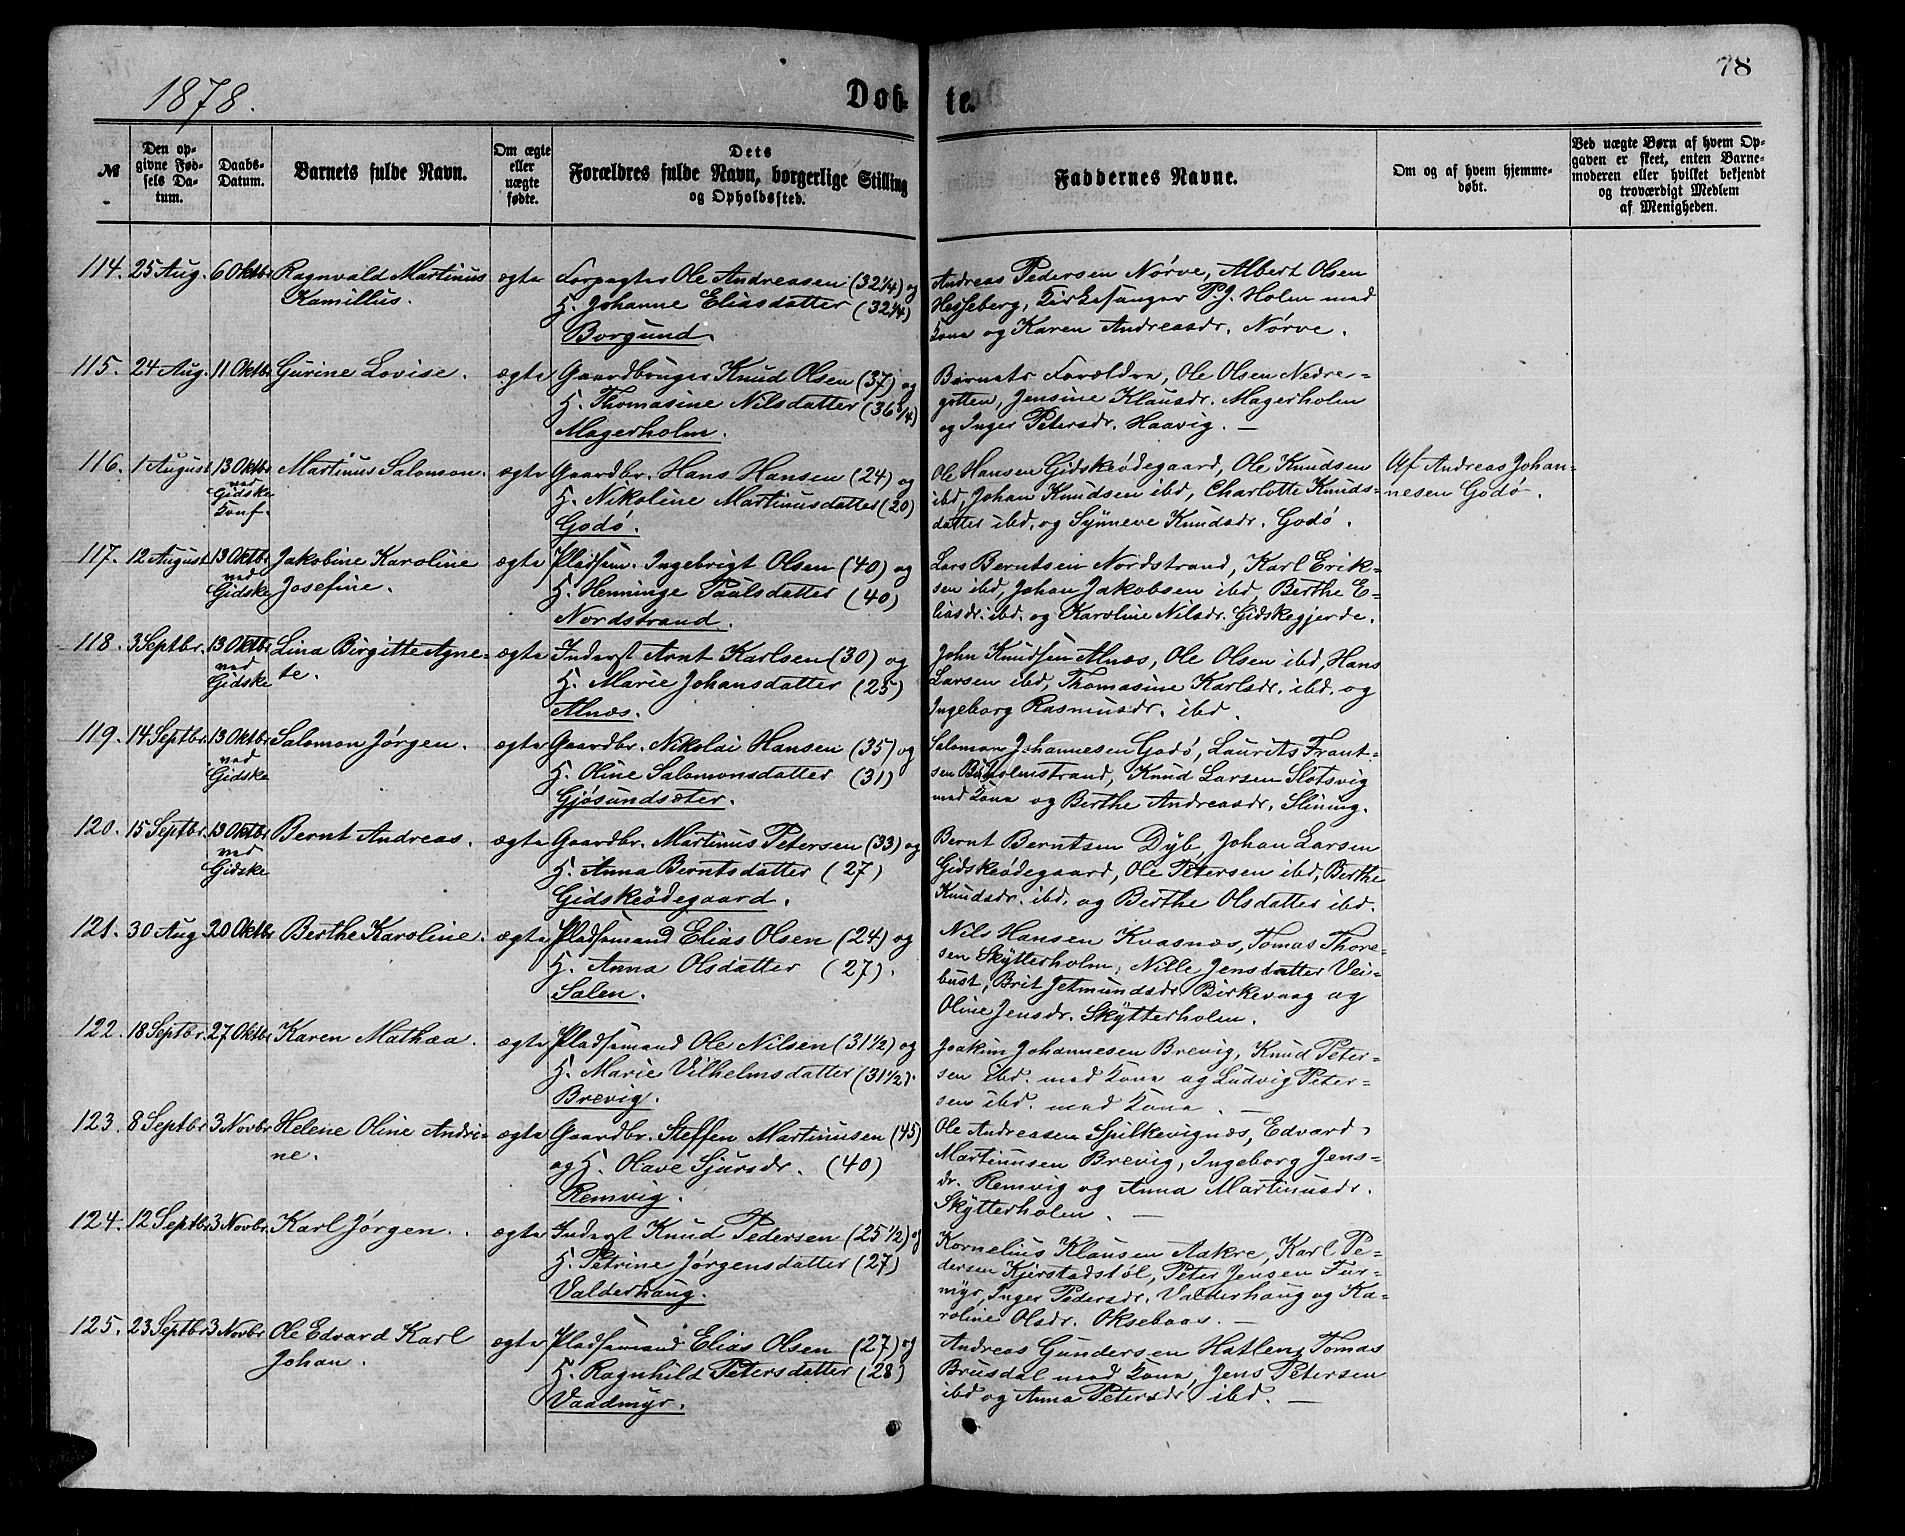 78
1878.
Døb- te.
№
Den opgivne Fødsels Datum.
Daabs-Datum.
Barnets fulde Navn.
Om ægte eller uægte fødte.
Dets Forældres fulde Navn, borgerlige Stilling og Opholdssted.
Faddernes Navne.
Om og af hvem hjemmedøbt.
Ved uægte Børn af hvem Opgaven er skeet, enten Barnemoderen eller hvilket bekjendt og troværdigt Medlem af Menigheden.
114. 25 Aug. 6 Oktbr Ragnvald Martinus ægte Forpagter Ole Andreasen (32 1/4) og Andreas Pedersen Nørve, Albert Olsen
Kamillus. H. Johanne Eliasdatter (32 3/4) Hesseberg, Kirkesanger P.J. Holm med
Borgund. Kone og Karen Andreasdr. Nørve.
115. 24 Aug. 11 Oktbr Gurine Lovise. ægte Gaardbruger Knud Olsen (37) og Barnets Forældre, Ole Olsen Nedre-
H. Thomasine Nilsdatter (36 1/4) gotten, Jensine Klausdr. Magerholm
Magerholm. og Inger Petersdr. Haavig. —
116. 1 August 13 Oktbr Martinus Salomon. ægte Gaardbr. Hans Hansen (24) og Ole Hansen Gidskeødegaard, Ole Knudsen Af Andreas Johan-
ved Gidske Konf. H. Nikoline Martinusdatter (20) ibd, Johan Knudsen ibd, Charlotte Knuds- nesen Godø.
Godø. datter ibd. og Synneve Knudsdr. Godø.
117. 12 August 13 Oktbr Jakobine Karoline ægte Pladsm. Ingebrigt Olsen (40) og Lars Berntsen Nordstrand, Karl Erik-
ved Gidske Josefine. H. Henninge Paulsdatter (40) sen ibd, Johan Jakobsen ibd, Berthe E-
Nordstrand. liasdr. ibd. og Karoline Nilsdr. Gidskegjerde.
118. 3 Septbr. 13 Oktbr Lina Birgitte Agne- ægte Inderst Arnt Karlsen (30) og John Knudsen Alnæs, Ole Olsen ibd, Hans
ved Gidske te. H. Marie Johansdatter (25) Larsen ibd, Thomasine Karlsdr. ibd. og
Alnæs. Ingeborg Rasmusdr. ibd.
119. 14 Septbr. 13 Oktbr Salomon Jørgen. ægte Gaardbr. Nikolai Hansen (35) og Salomon Johannesen Godø, Laurits Frant-
ved Gidske H. Oline Salomonsdatter (31) sen Buholmstrand, Knud Larsen Slotsvig
Gjøsundsæter. med Kone og Berthe Andreasdr. Slining.
120. 15 Septbr. 13 Oktbr Bernt Andreas. ægte Gaardbr. Martinus Petersen (33) og Bernt Berntsen Dyb, Johan Larsen
ved Gidske H. Anna Berntsdatter (27) Gidskeødegaard, Ole Petersen ibd, Berthe
Gidskeødegaard. Knudsdr. ibd. og Berthe Olsdatter ibd.
121. 30 Aug. 20 Oktbr Berthe Karoline. ægte Pladsemand Elias Olsen (24) og Nils Hansen Kvasnæs, Tomas Thore-
H. Anna Olsdatter (27). sen Skytterholm, Nille Jensdatter Vei-
Salen. bust, Brit Jetmundsdr. Birkevaag og
Oline Jensdr. Skytterholm.
122. 18 Septbr. 27 Oktbr Karen Mathea. ægte Pladsemand Ole Nilsen (31 1/2) og Joakim Johannesen Brevig, Knud Peter-
H. Marie Vilhelmsdatter (31 1/2). sen ibd. med Kone og Ludvig Peter-
Brevig. sen ibd. med Kone. —
123. 8 Septbr 3 Novbr Helene Oline Andri- ægte Gaardbr. Steffen Martinusen (45) Ole Andreasen Spilkevignæs, Edvard
ne. og H. Olave Sjursdr. (40) Martinusen Brevig, Ingeborg Jens-
Remvig. dr. Remvig og Anna Martinusdr.
Skytterholm. —
124. 12 Septbr 3 Novbr. Karl Jørgen. ægte Inderst Knud Pedersen (25 1/2) og Kornelius Klausen Aakre, Karl Pe-
H. Petrine Jørgensdatter (27) dersen Kjerstadstøl, Peter Jensen Fur-
Valderhaug. myr, Inger Pedersdr. Valderhaug og Ka-
roline Olsdr. Oksebaas. —
125. 23 Septbr 3 Novbr. Ole Edvard Karl ægte Pladsemand Elias Olsen (27) og Andreas Gundersen Hatlen, Tomas
Johan. H. Ragnhild Petersdatter (28) Brusdal med Kone, Jens Petersen
Vaadmyr. ibd og Anna Petersdr ibd. —